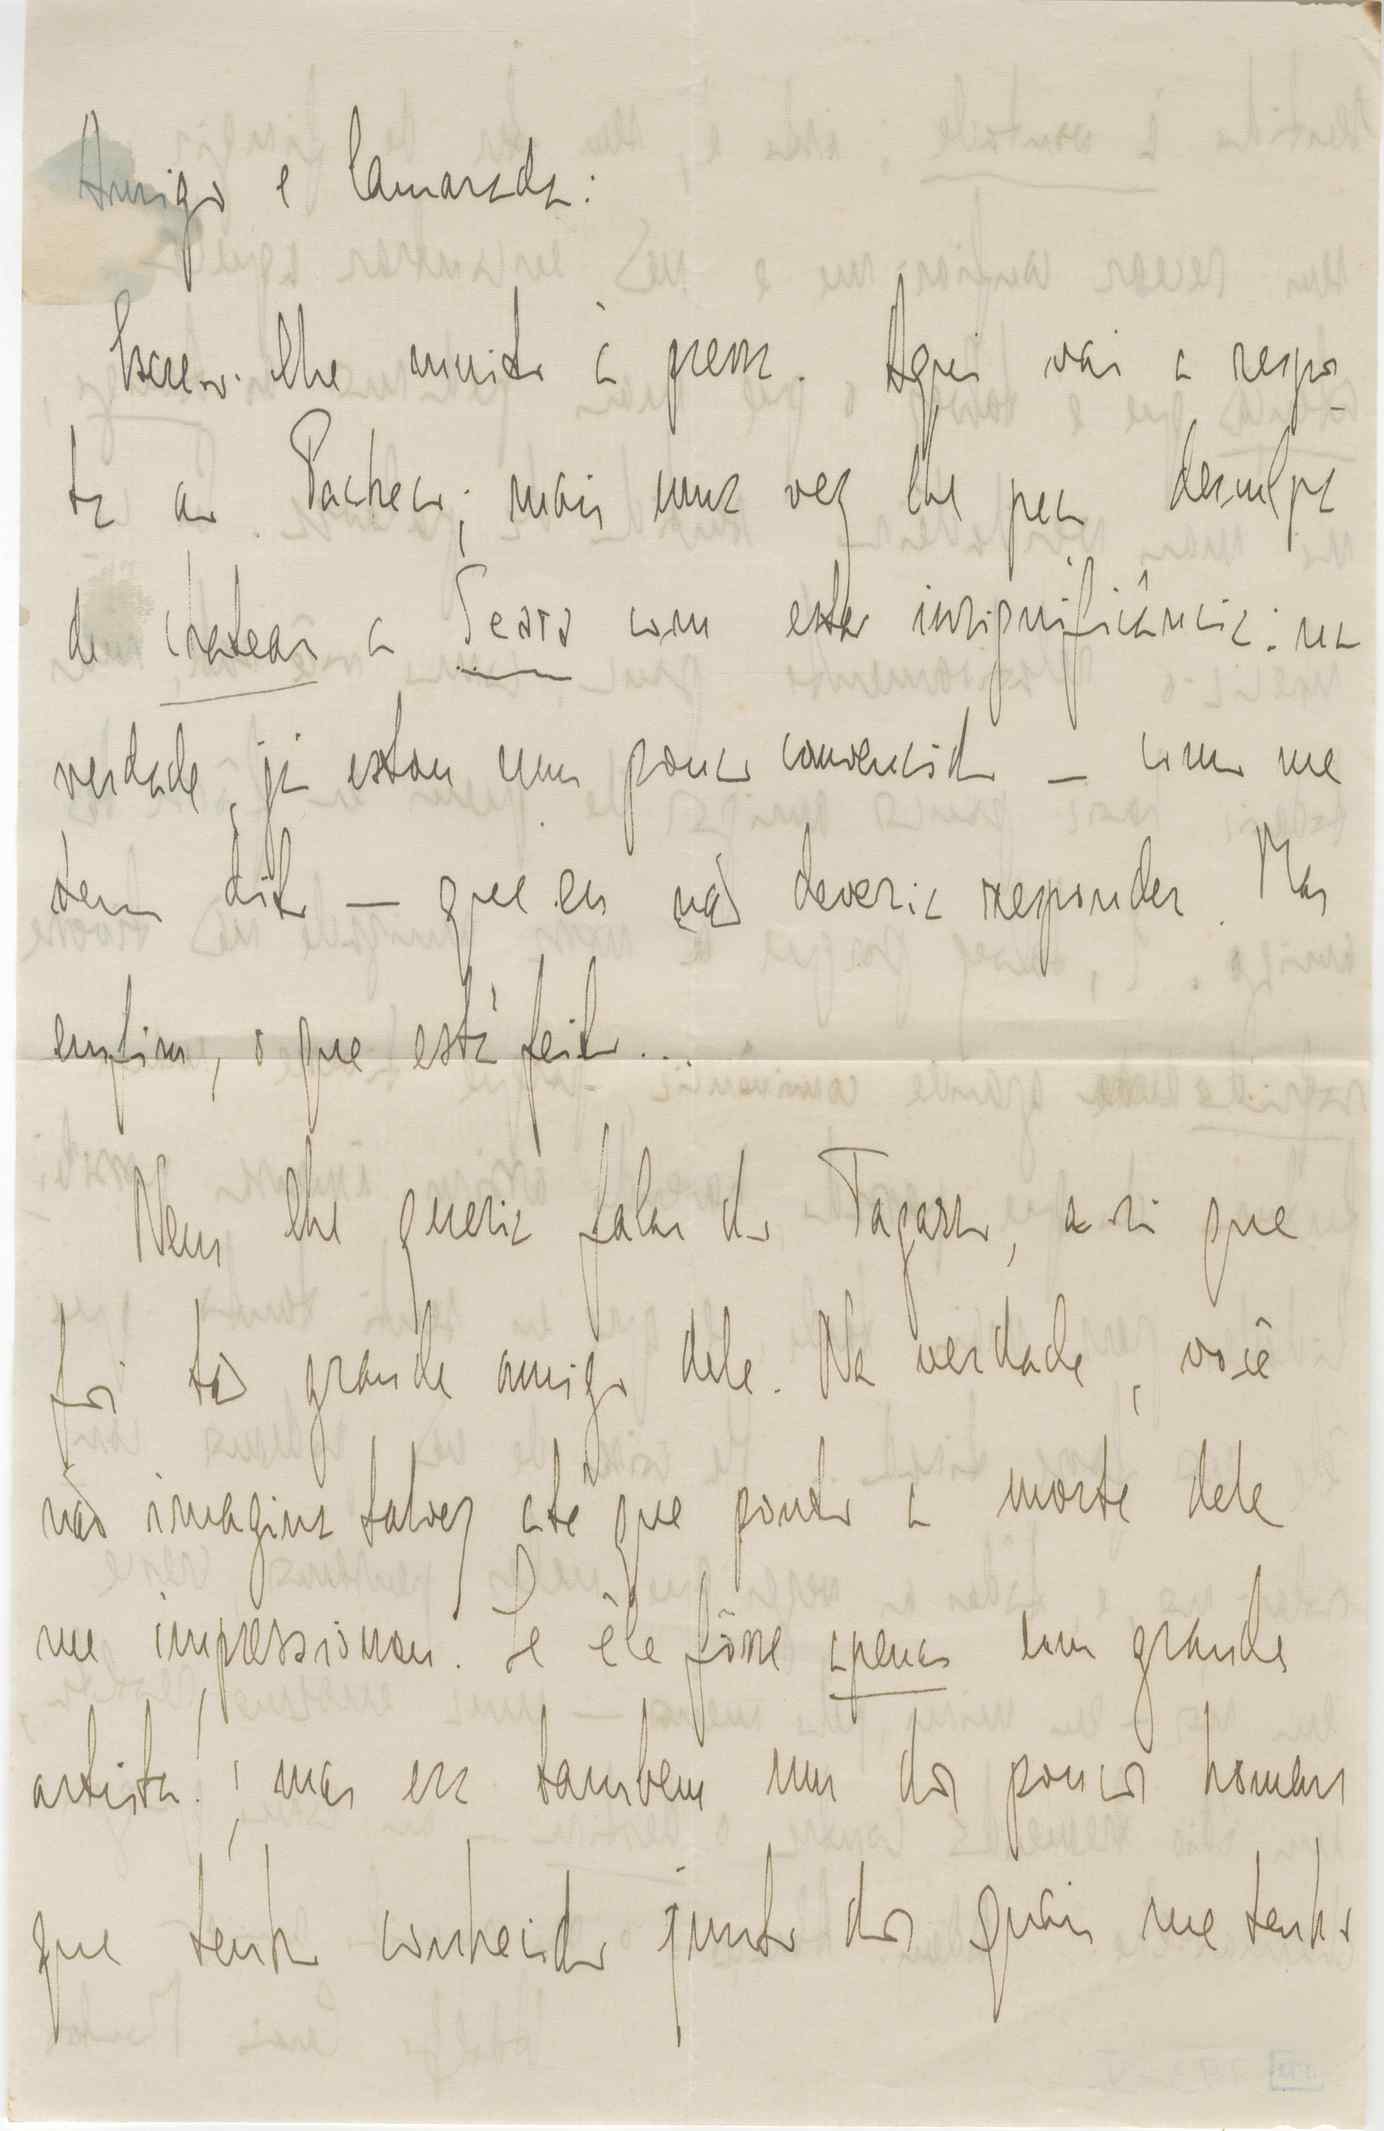 Amigo e Camarada:
Escrevo-lhe muito à pressa. Aqui vai a respos-
ta ao Pacheco; mais uma vez lhe peço desculpa
de chatear a Seara com esta insignificância: na
verdade, já estou um pouco convencido — como me
tem dito — que eu não deveria responder. Mas
enfim, o que está feito...
Nem lhe queria falar do Tagarro, a si que
foi tão grande amigo dele. Na verdade, você
não imagina talvez até que ponto a morte dele
me impressionou. Se êle fôsse apenas um grande
artista!; mas era tambem um dos poucos homens
que tenho conhecido junto dos quais me tenho